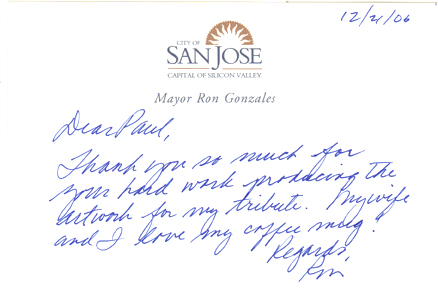 12/21/06
CITY OF
SAN JOSE
CAPITAL OF SILICON VALLEY
Mayor Ron Gonzales
Dear Paul,
Thank you so much for
your hard work producing the
artwork for my tribute. My wife
and I love my coffee mug!
Regards,
Ron